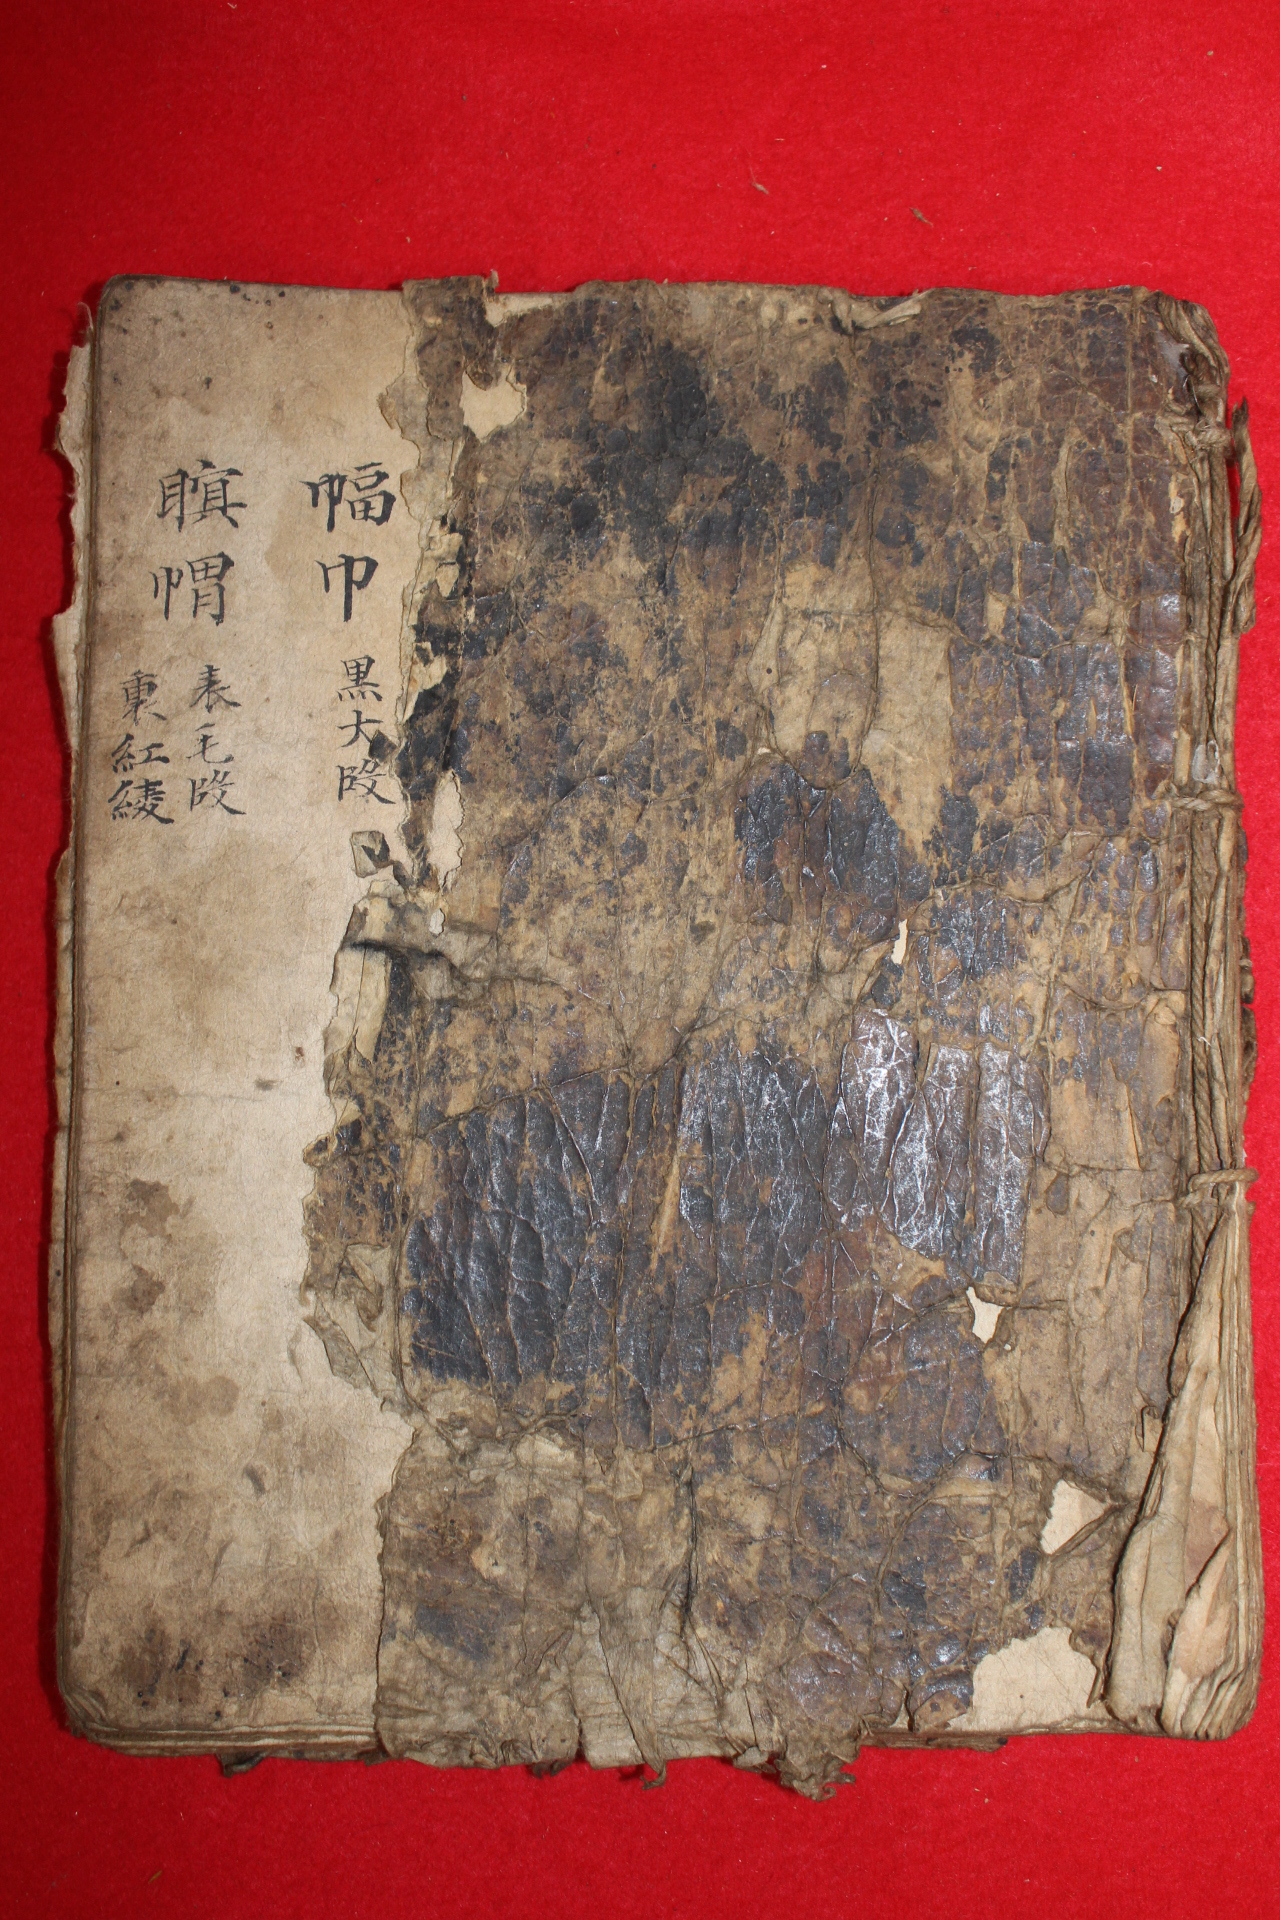 幅巾 黒大段
瞑帽 表毛段
裏紅綾